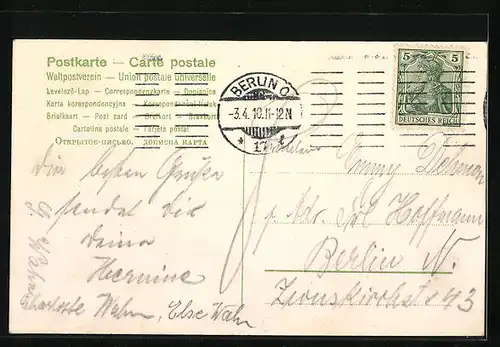 Postkarte — Carte postale
Weltpostverein — Union postale universelle
Levelező-Lap — Correspondenzkarte — Dopisnice
Karta korespondencyjna — Korespondenční lístek
Briefkart — Post card — Brefkort — Brevkort
Cartolina postale — Tarjeta postal
ОТКРЫТОЕ ПИСЬМО. ДОПИСНА КАРТА
BERLIN O
-3.4.10.11-12N
* 17 *
5 5
DEUTSCHES REICH
Die besten Grüße
sendet dir
deine
Hermine
Charlotte Wahn, Else Wahn
Emmy
p. Adr. Hoffmann
Berlin N.
Zionskirchstr 43